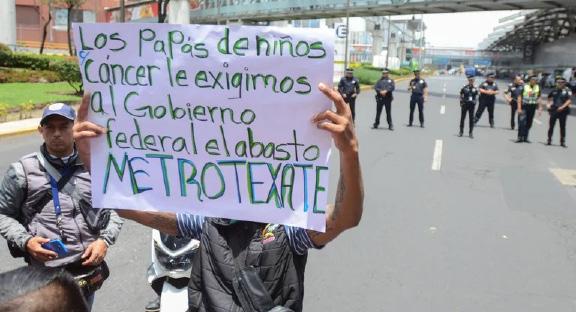 Los PaPás de niños
Cáncer le exigimos
al Gobierno
federal el abasto
METROTEXATE
E